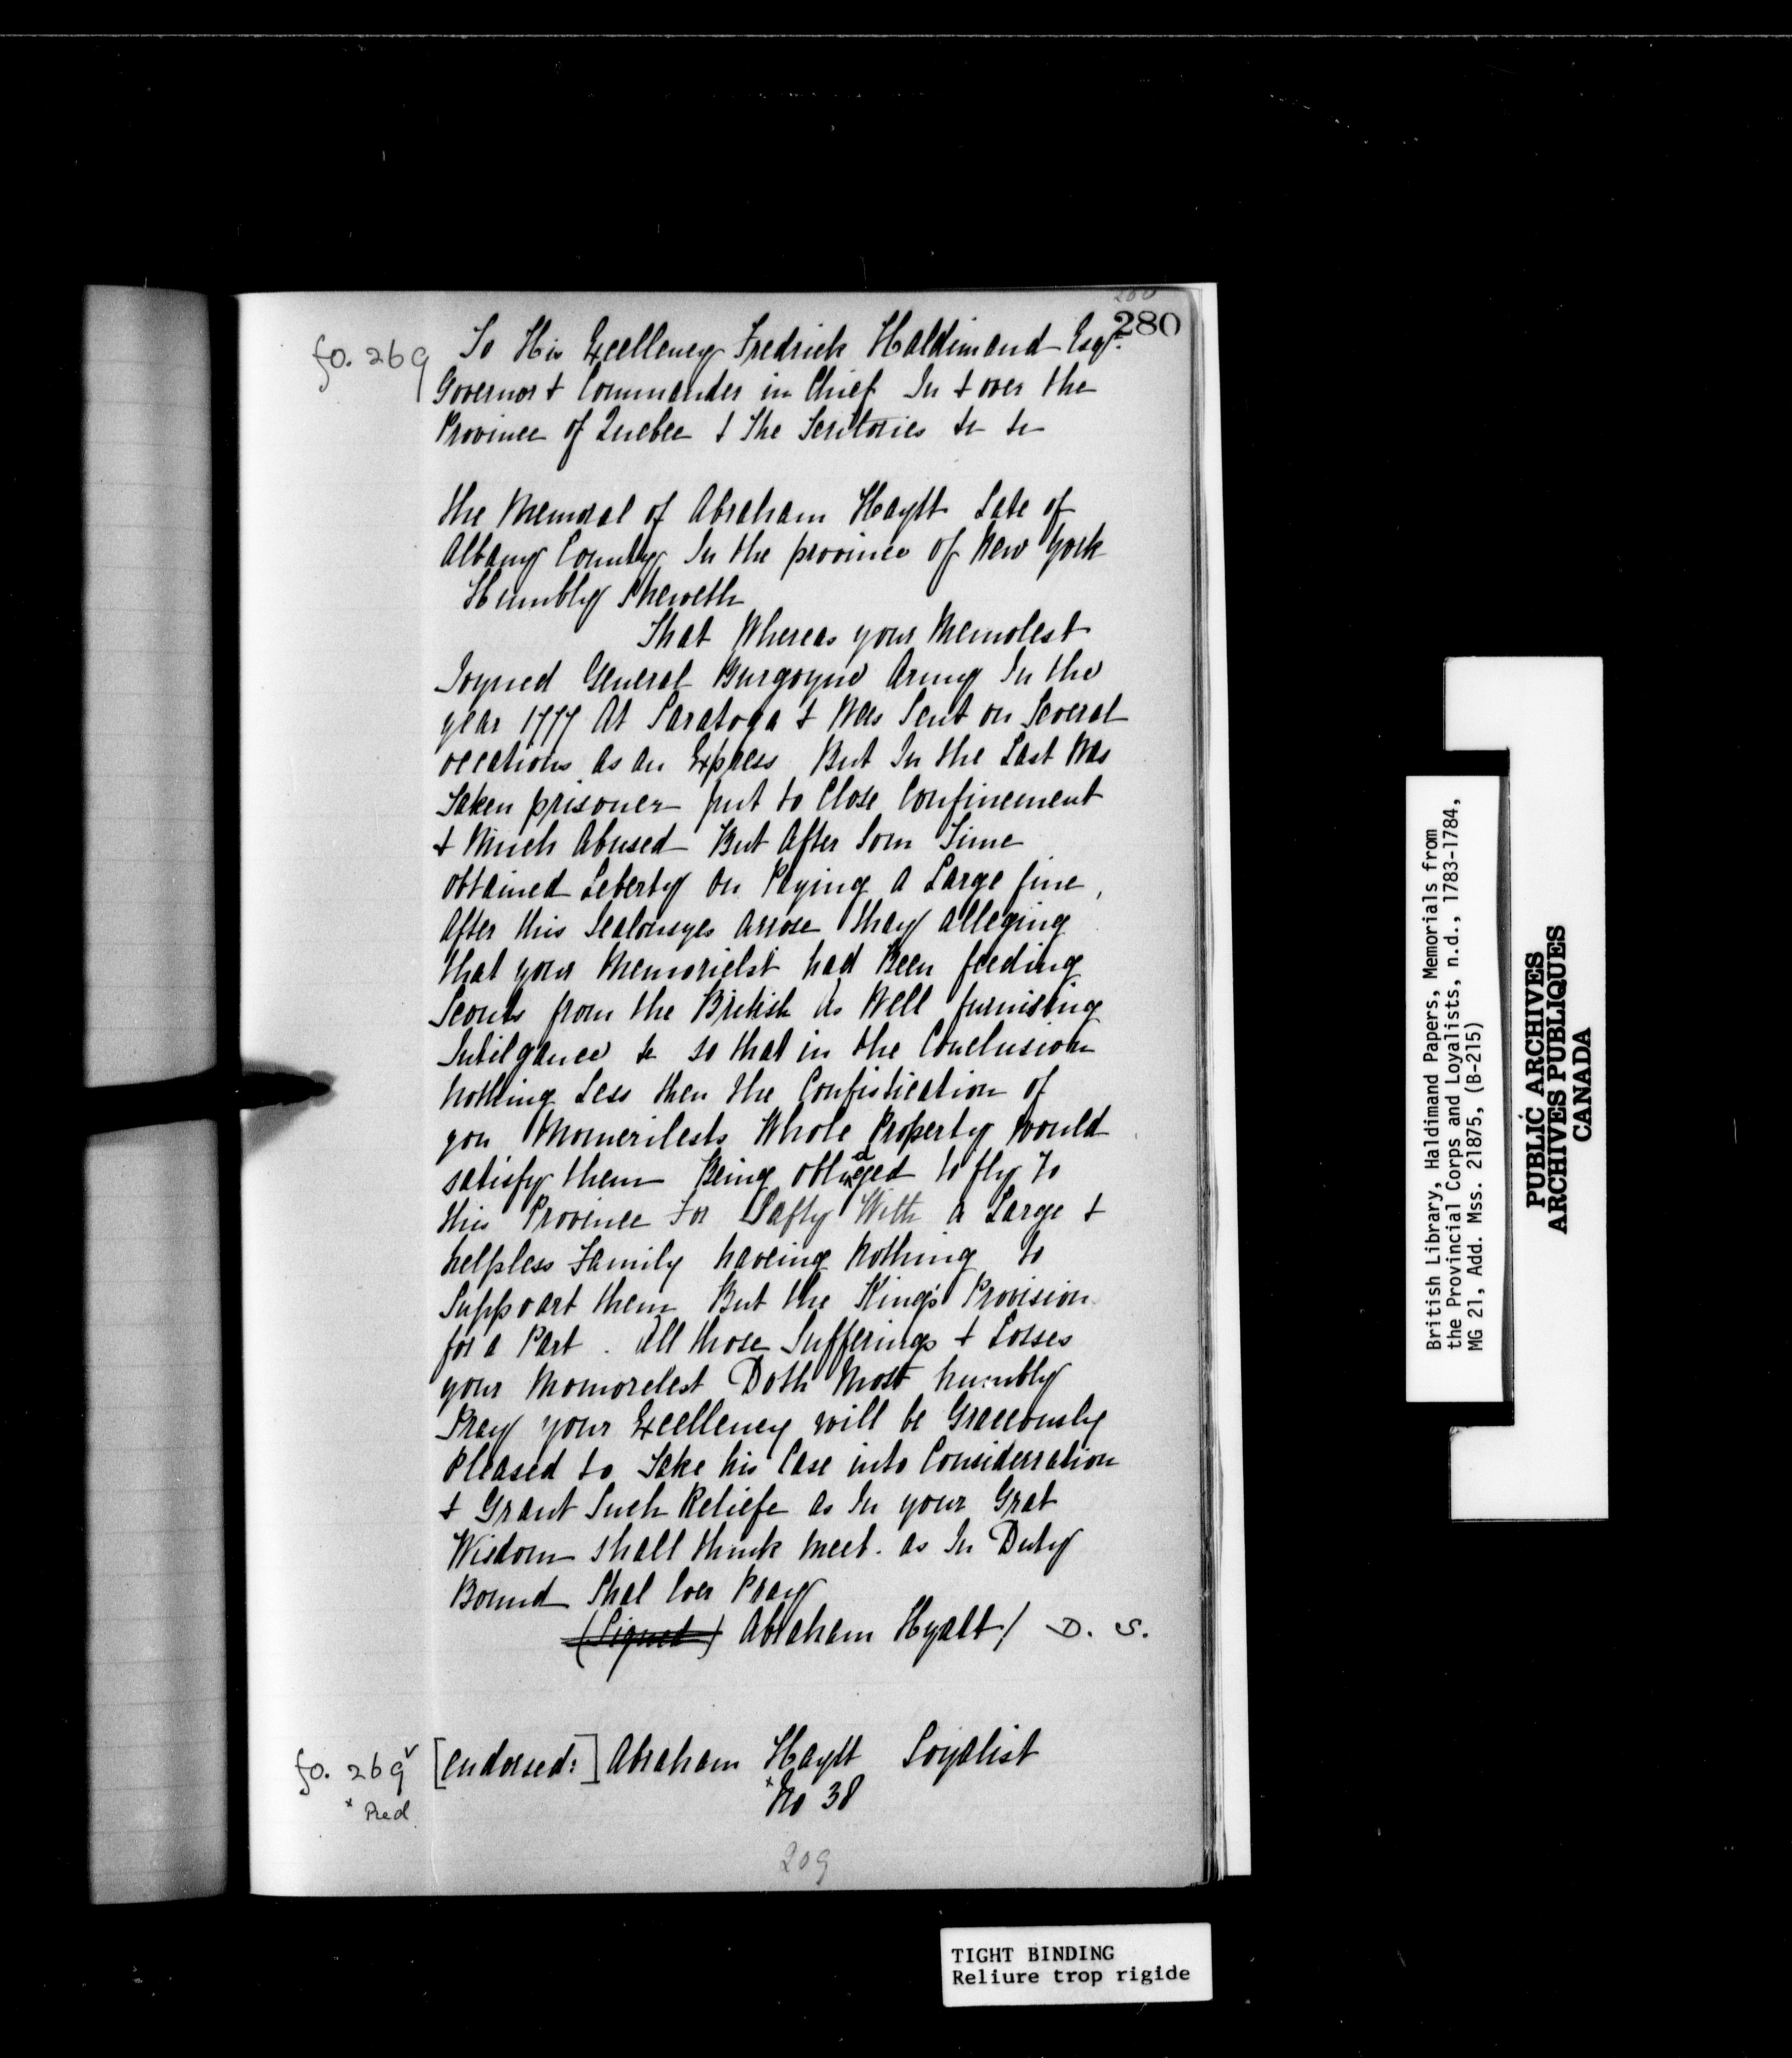 280
280
fo. 269
To His Excellency Fredrick Haldimand Esqr.
Governor & Commander in Chief In & over the
Province of Quebec & The Teritories &c &c
the Memoral of Abraham Haytt Late of
Albany County In the province of New York
Humbly Sheweth
That Whereas your Memolest
Joyned General Burgoyne Army In the
year 1777 At Saratoga & Was Sent on Several
occations as an Express But In the Last Was
Taken prisoner put to Close Confinement
& Much Abused But After Som Time
obtained Leberty on Paying a Large fine,
After this Jealousyes arrose thay alleging
that your Memorielst had Been feeding
Scouts from the British As Well furnisting
Intilgance &c so that in the Conclusion
nothing Less then the Confistication of
you Momerilests Whole Property would
satisfy them Being obliged to fly To
this Province For Safty With a Large &
helpless Family haveing Nothing to
Suppoart them But the King's Provision
for a Part. All those Sufferings & Losses
your Momorelest Doth Most humbly
Pray your Excellency will be Graceously
Pleased to Take his Case into Considerration
& Grant Such Reliefe as In your Grat
Wisdom shall think meet. as In Duty
Bound Shal Ever Pray
(Signed) Abraham Hyatt / D. S.
fo. 269v [endorsed:] Abraham Haytt Loyalist
* No 38
* Red
209
TIGHT BINDING
Reliure trop rigide
British Library, Haldimand Papers, Memorials from
the Provincial Corps and Loyalists, n.d., 1783-1784,
MG 21, Add. Mss. 21875, (B-215)
PUBLIC ARCHIVES
ARCHIVES PUBLIQUES
CANADA